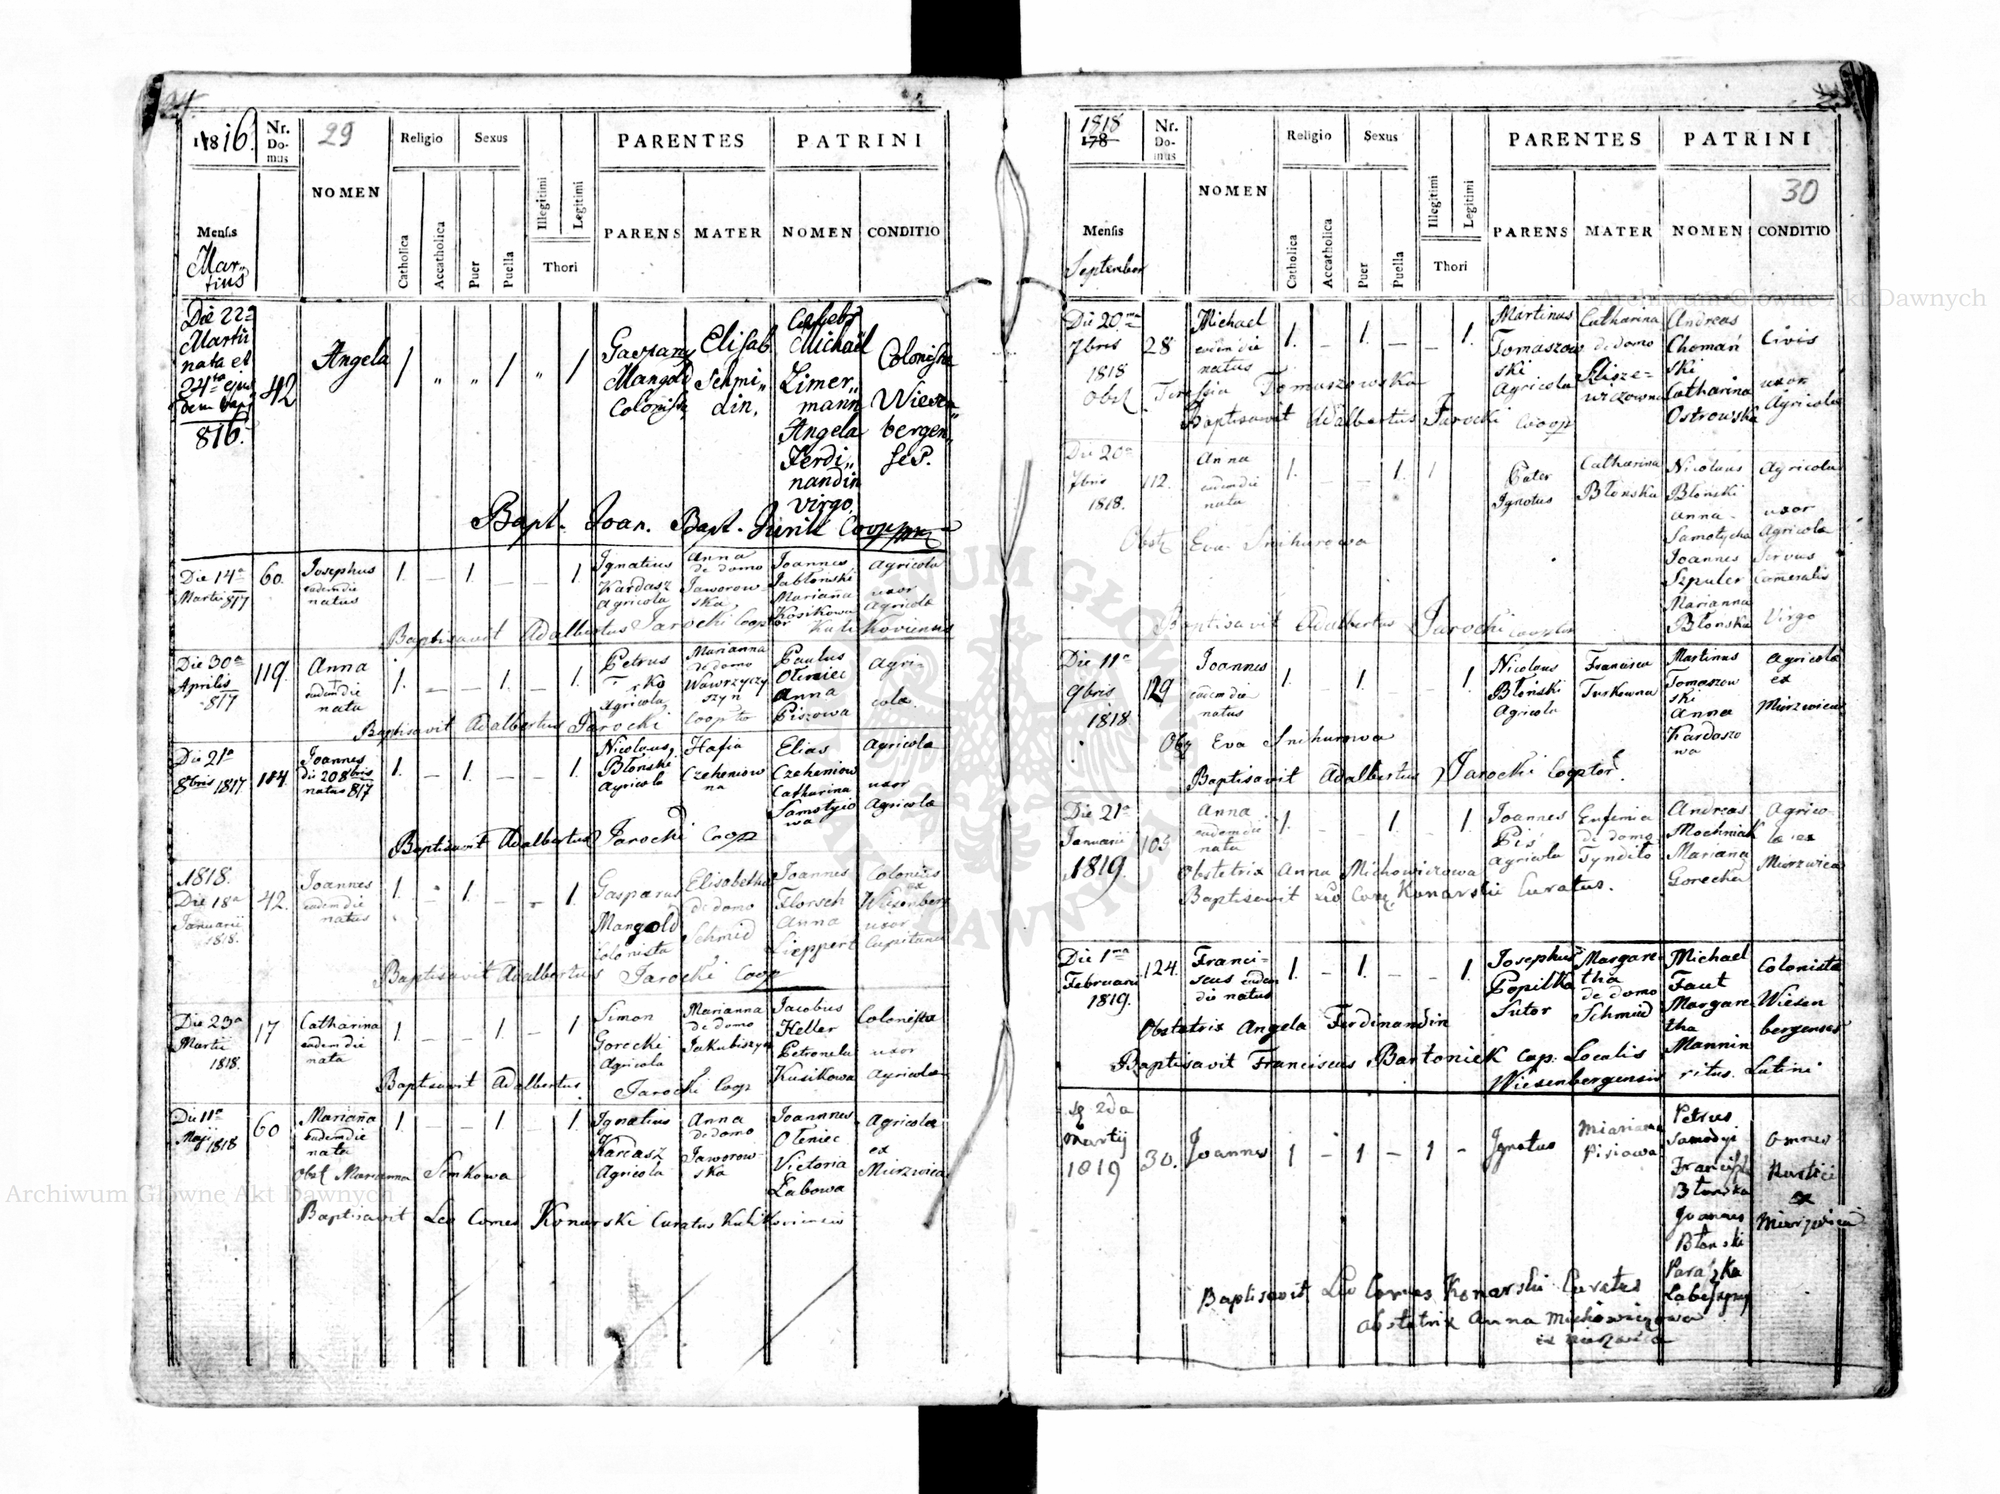 1816.
Nr. Domus
29
NOMEN
Religio
Sexus
Illegitimi
Legitimi
Thori
PARENTES
PATRINI
Mensis
Catholica
Accatholica
Puer
Puella
PARENS
MATER
NOMEN
CONDITIO
Martius
Die 22a
Martii
nata et
24ta ejus
dem bapt
816.
42
Angela
1 " " 1 " 1
Mangold
Colonista
Elisab
Schmi"
din,
Michael
Zimer"
mann
Angela
Ferdi"
nandin
virgo.
Colonista
Wiesen"
bergen"
ses.
Bapt. Joan. Bapt.
Die 14a
Martii 817
60.
Josephus
eadem die
natus
1. – 1. – – 1.
Ignatius
Kardasz
Agricola
Anna
de domo
Jaworow-
ska
Joannes
Jabłoński
Marianna
Kosikowa
Agricola
uxor
Agricola
Baptisavit Adalbertus Jarocki Cooptor Kulikoviensis
Die 30a
Aprilis
817
119.
Anna
eadem die
nata
1. – – 1. – 1.
Petrus
Agricola
Marianna
de domo
Wawrzyczy
szyn
Paulus
Oleniec
Anna
Piszowa
Agri-
cola
Baptisavit Adalbertus Jarocki Coopto
Die 21a
8bris 1817
184.
Joannes
die 20 8bris
natus 817
1. – 1. – – 1.
Nicolaus
Błoński
Agricola
Hafia
Czeheniow
na
Elias
Czeheniow
Catharina
Agricola
uxor
Agricola
Baptisavit Adalbertus Jarocki Coop
1818.
Die 18a
Januarii
1818.
42.
Joannes
eadem die
natus
1. – 1. – – 1.
Gasparus
Mangold
Colonista
Elisabetha
de domo
Schmid
Joannes
Florsch
Anna
Lieppert
ex
Wiesenberg
uxor
Baptisavit Adalbertus Jarocki Coop
Die 23a
Martii
1818.
17
Catharina
eadem die
nata
1. – – 1. – 1.
Simon
Gorecki
Agricola
Marianna
de domo
Jakubiszyn
Jacobus
Heller
Petronela
Kusikowa
Colonista
uxor
Agricola
Baptisavit Adalbertus Jarocki Coop
Die 11a
Maji 1818
60
Marianna
eadem die
nata
1. – – 1. – 1.
Ignatius
Kardasz
Agricola
Anna
de domo
Jaworow-
ska
Joannes
Oleniec
Victoria
Łabowa
Agricola
ex
Mierzwica
Obst Marianna Senkowa
Baptisavit Leo Comes Konarski Curatus Kulikoviensis
1818
178
Nr. Domus
NOMEN
Religio
Sexus
Illegitimi
Legitimi
Thori
PARENTES
PATRINI
30
Mensis
Catholica
Accatholica
Puer
Puella
PARENS
MATER
NOMEN
CONDITIO
September
Die 20ma
7bris
1818
28
Michael
eadem die
natus
1. – 1. – – 1.
Martinus
Tomaszow
ski
Agricola
Catharina
de domo
Andreas
Chomań
ski
Catharina
Ostrowska
Civis
uxor
Agricola
Obst Teressia Tomaszowska
Baptisavit Adalbertus Jarocki Coop
Die 20a
7bris
1818.
112.
Anna
eadem die
nata
1. – – 1. 1
Pater
Ignotus
Catharina
Błońska
Nicolaus
Błoński
Anna
Samotycha
Joannes
Szpuler
Marianna
Błonska
Agricola
uxor
Agricola
Servus
Cameralis
Virgo
Obst Eva Snihurowa
Baptisavit Adalbertus Jarocki Cooptor
Die 11a
9bris
1818
129
Joannes
eadem die
natus
1. – 1. – – 1.
Nicolaus
Błoński
Agricola
Francisca
Turkowna
Martinus
Tomaszow
ski
Anna
Kardaszo
wa
Agricola
ex
Mierzwica
Obst Eva Snihurowa
Baptisavit Adalbertus Jarocki Cooptor.
Die 21a
Januarii
1819.
Anna
eadem die
nata
1. – – 1. – 1.
Joannes
Agricola
Eufemia
de domo
Tyndiło
Andreas
Mochniak
Mariana
Gorecka
Agrico-
la ex
Mierzwica
Obstetrix Anna Michowiczowa
Baptisavit Leo Comes Konarski Curatus.
Die 1ma
Februarii
1819.
124.
Franci-
scus eadem
die natus
1. – 1. – – 1.
Josephus
Popilka
Sutor
Margare-
tha
de domo
Schmid
Michael
Faut
Margare-
tha
Mannin
ritus
Colonista
Wiesen
bergenses
Latini
Obstetrix Angela Ferdinandin
Baptisavit Franciscus Bartoniek Cap. Localis
Wiesenbergensis
2da
Martij
1819
30.
Joannes
1 – 1 – 1 –
Ignotus
Mariana
Pisiowa
Petrus
Samotyi
Francisca
Błonska
Joannes
Błonski
Paraszka
omnes
Rustici
ex
Mierzwica
Baptisavit Leo Comes Konarski Curatus
Obstetrix Anna Michowiczowa
ex Mierzwica
Archiwum Główne Akt Dawnych
Archiwum Główne Akt Dawnych
ARCHIWUM GŁÓWNE AKT DAWNYCH